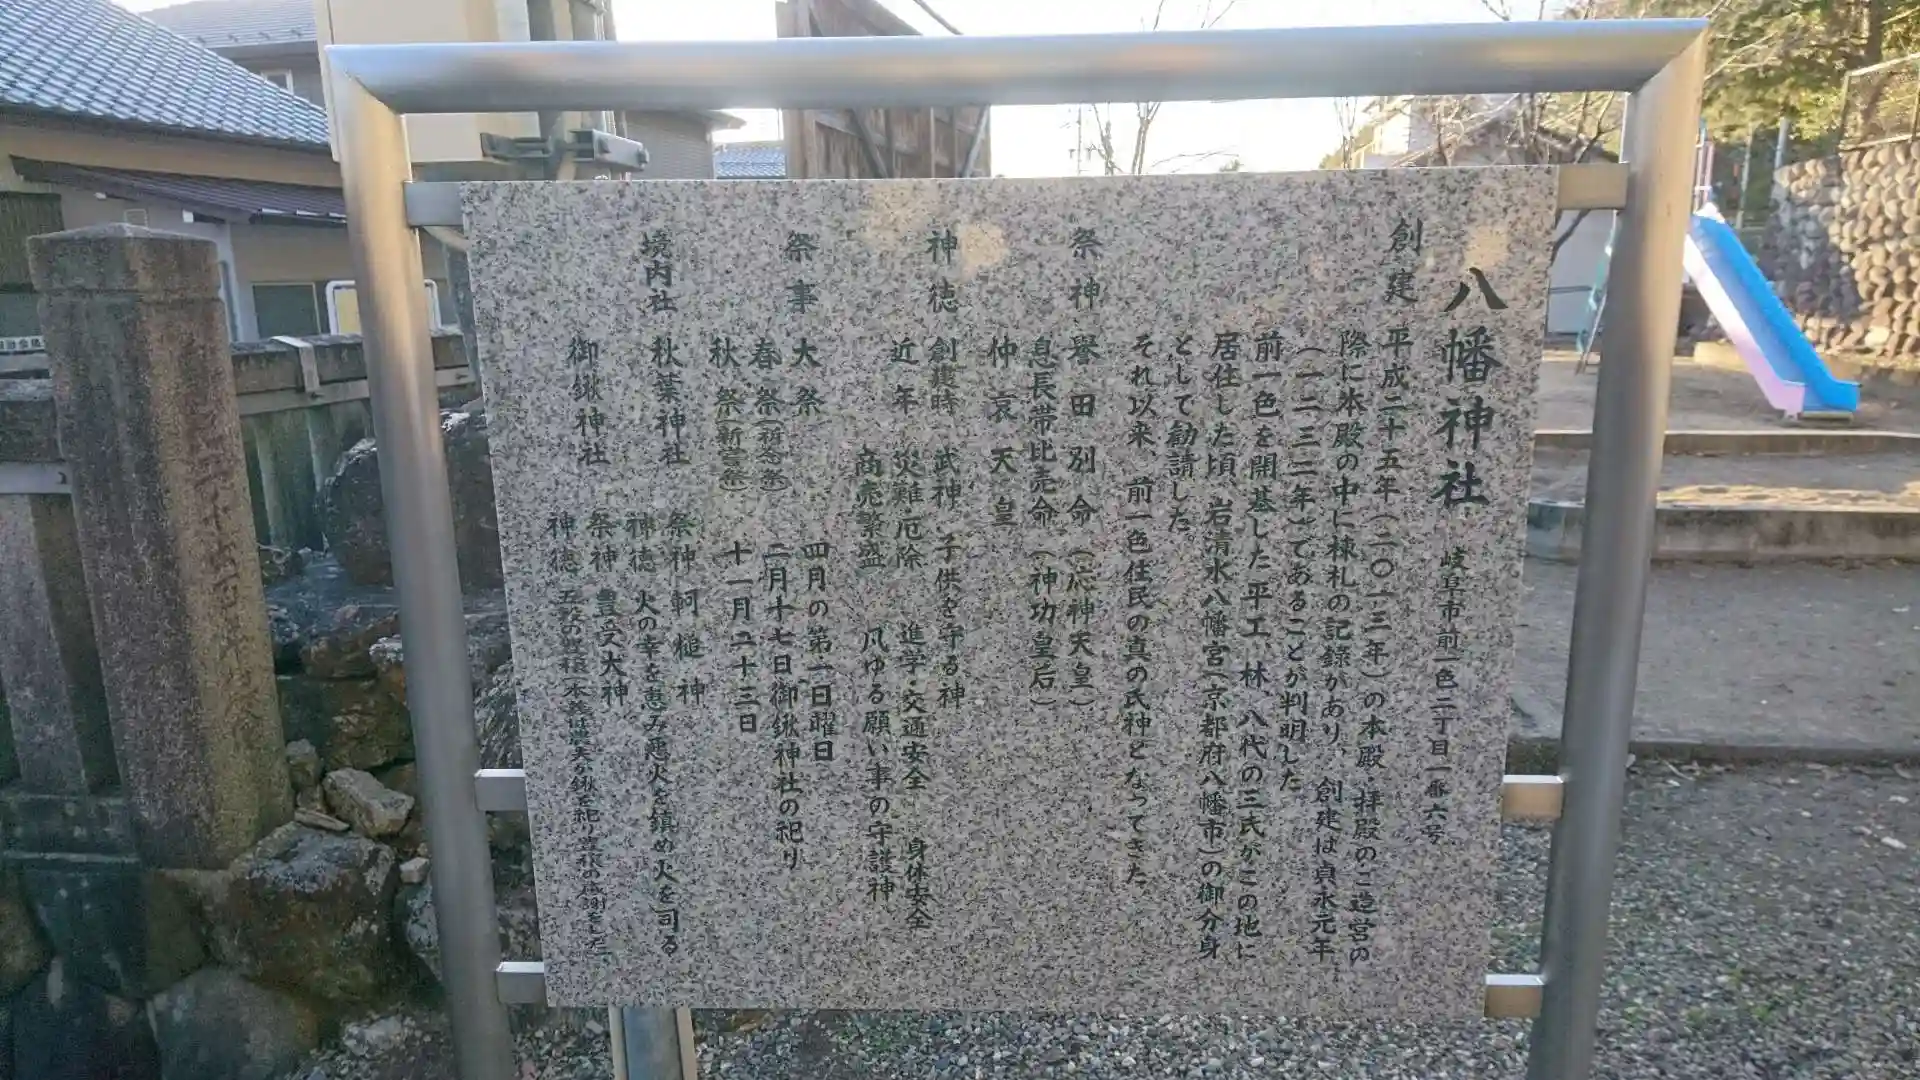 八幡神社 岐阜市前一色二丁目一番六号
創建 平成二十五年(二〇一三年)の本殿・拝殿のご造営の
際に本殿の中に棟札の記録があり、創建は貞永元年
(一二三二年)であることが判明した。
前一色を開基した平工、林、八代の三氏がこの地に
居住した頃、岩清水八幡宮(京都府八幡市)の御分身
として勧請した。
それ以来、前一色住民の真の氏神となってきた。
祭神 誉田別命(応神天皇)
息長帯比売命(神功皇后)
仲哀天皇
神徳 創建時 武神 子供を守る神
近年 災難厄除 進学・交通安全 身体安全
商売繁盛 凡ゆる願い事の守護神
祭事 大祭 四月の第一日曜日
春祭(祈念祭) 二月十七日御鍬神社の祀り
秋祭(新嘗祭) 十一月二十三日
境内社 秋葉神社 祭神 軻槌神
神徳 火の幸を恵み悪火を鎮め火を司る
御鍬神社 祭神 豊受大神
神徳 五穀の豊穣 本義は農夫が鍬を祀り豊穣の感謝をした。